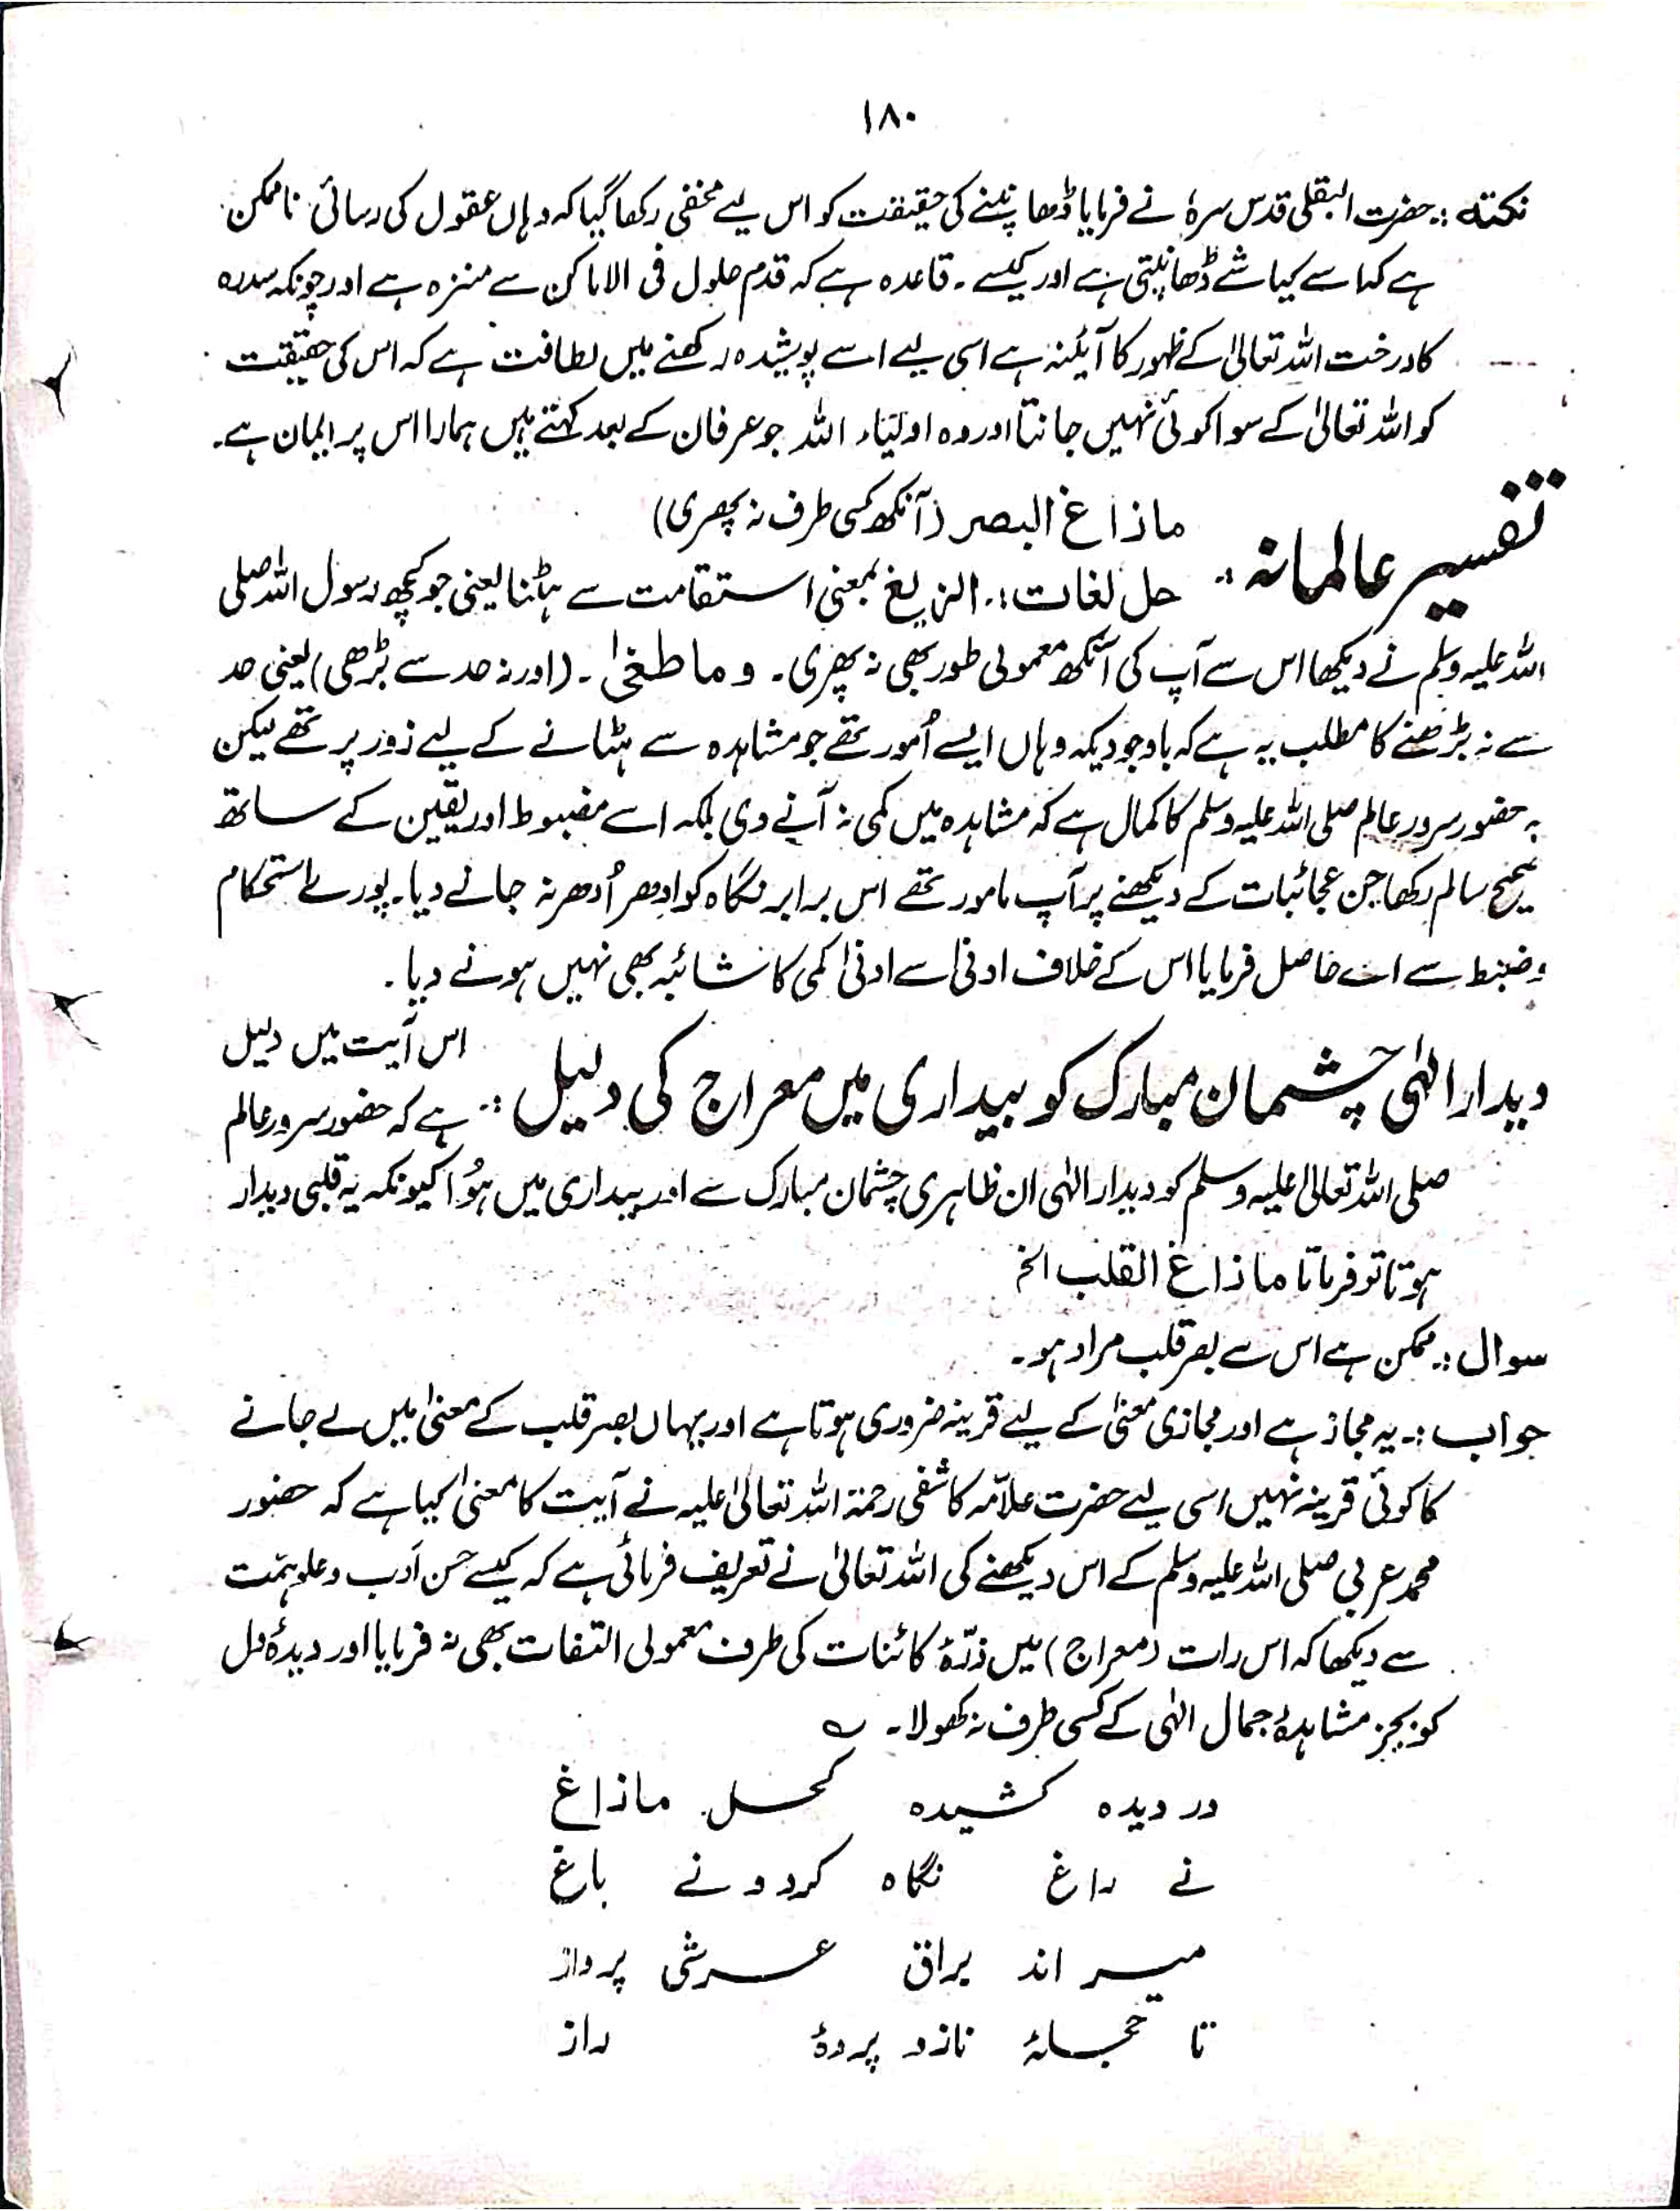 ۱۸۰
نکتہ :۔ حضرت البقلی قدس سرہٗ نے فرمایا ڈھانپنے کی حقیقت کو اس لیے مخفی رکھا گیا کہ وہاں عقول کی رسائی ناممکن
ہے کہ اسے کیا شے ڈھانپتی ہے اور کیسے ۔ قاعدہ ہے کہ قدم حلول فی الاماکن سے منزہ ہے اور چونکہ سدرہ
کا درخت اللہ تعالیٰ کے ظہور کا آئینہ ہے اسی لیے اسے پوشیدہ رکھنے میں لطافت ہے کہ اس کی حقیقت
کو اللہ تعالیٰ کے سوا کوئی نہیں جانتا اور وہ اولیاء اللہ جو عرفان کے بعد کہتے ہیں ہمارا اس پر ایمان ہے۔
تفسیر عالمانہ :۔ ماذاغ البصر (آنکھ کسی طرف نہ پھری)
حل لغات :۔ الزیغ بمعنی استقامت سے ہٹنا یعنی جو کچھ رسول اللہ صلی
اللہ علیہ وسلم نے دیکھا اس سے آپ کی آنکھ معمولی طور بھی نہ پھری۔ وما طغیٰ ۔ (اور نہ حد سے بڑھی) یعنی حد
سے نہ بڑھنے کا مطلب یہ ہے کہ باوجودیکہ وہاں ایسے اُمور تھے جو مشاہدہ سے ہٹانے کے لیے زور پر تھے لیکن
یہ حضور سرور عالم صلی اللہ علیہ وسلم کا کمال ہے کہ مشاہدہ میں کمی نہ آنے دی بلکہ اسے مضبوط اور یقین کے ساتھ
صحیح سالم رکھا جن عجائبات کے دیکھنے پر آپ مامور تھے اس برابر نگاہ کو ادھر اُدھر نہ جانے دیا۔ پورے استحکام
وضبط سے اسے حاصل فرمایا اس کے خلاف ادنیٰ سے ادنیٰ کمی کا شائبہ بھی نہیں ہونے دیا ۔
دیدار الٰہی چشمان مبارک کو بیداری میں معراج کی دلیل :۔ اس آیت میں دلیل
ہے کہ حضور سرور عالم
صلی اللہ تعالیٰ علیہ وسلم کو دیدار الٰہی ان ظاہری چشمان مبارک سے اور بیداری میں ہُوا کیونکہ یہ قلبی دیدار
ہوتا تو فرماتا ماذاغ القلب الخ
سوال :۔ ممکن ہے اس سے بصر قلب مراد ہو ۔
جواب :۔ یہ مجاز ہے اور مجازی معنیٰ کے لیے قرینہ ضروری ہوتا ہے اور یہاں بصر قلب کے معنیٰ میں لے جانے
کا کوئی قرینہ نہیں اسی لیے حضرت علاّمہ کاشفی رحمۃ اللہ تعالیٰ علیہ نے آیت کا معنیٰ کیا ہے کہ حضور
محمد عربی صلی اللہ علیہ وسلم کے اس دیکھنے کی اللہ تعالیٰ نے تعریف فرمائی ہے کہ کیسے حسن اَدب وعلو ہمّت
سے دیکھا کہ اس رات (معراج) میں ذرّۂ کائنات کی طرف معمولی التفات بھی نہ فرمایا اور دیدۂ دل
کو بجز مشاہدۂ جمال الٰہی کے کسی طرف نہ کھولا ۔ ؎
در دیدہ کشیدہ کحل ماذاغ
نے راغ نگاہ کرد و نے باغ
میراند براق عرش پرواز
تا حجلۂ ناز و پردۂ راز